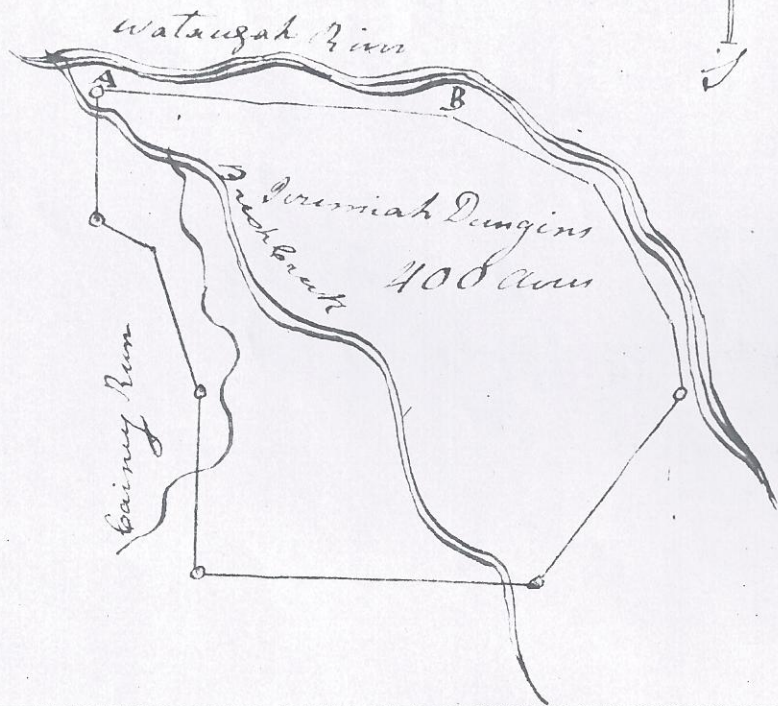 Wataugah River
A
B
Jeremiah Dungins
400 Acres
Brush Creek
Cainey Run